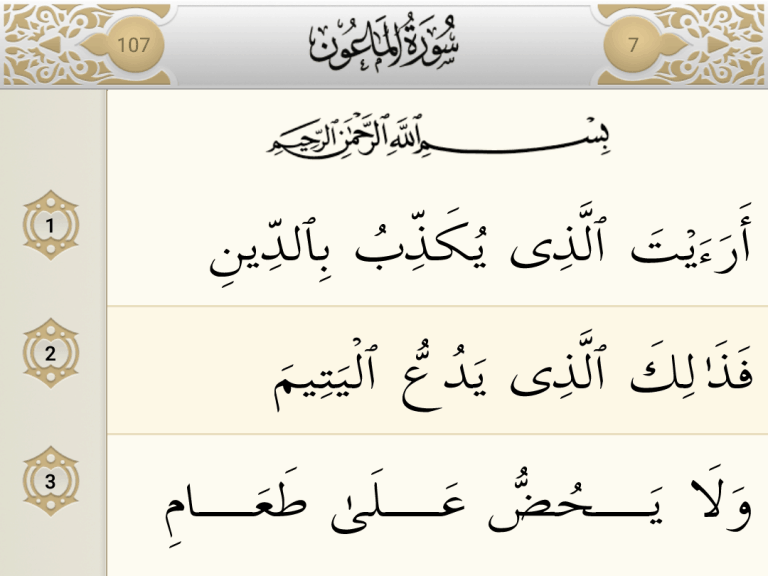 107 سُورَةُ المَاعُونِ 7
بِسْمِ ٱللَّهِ ٱلرَّحْمَٰنِ ٱلرَّحِيمِ
1 أَرَءَيْتَ ٱلَّذِى يُكَذِّبُ بِٱلدِّينِ
2 فَذَٰلِكَ ٱلَّذِى يَدُعُّ ٱلْيَتِيمَ
3 وَلَا يَـــحُضُّ عَـــلَىٰ طَعَـــامِ